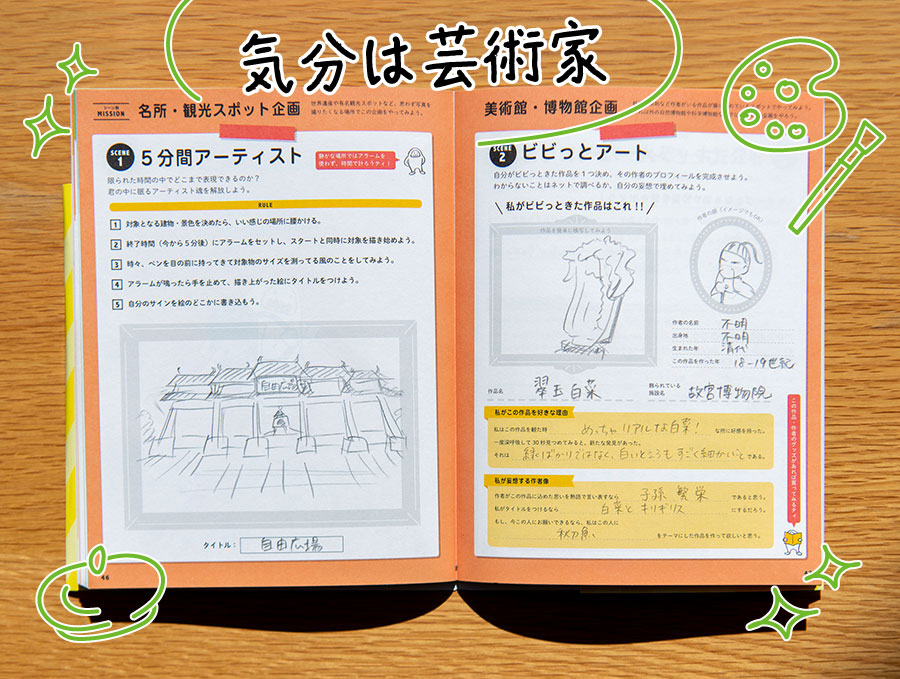 気分は芸術家
シーン別
MISSION
名所・観光スポット企画
世界遺産や有名観光スポットなど、思わず写真を
撮りたくなる場所でこの企画をやってみよう。
SCENE
1
5分間アーティスト
静かな場所ではアラームを
使わず、時間で計ろうティ!
限られた時間の中でどこまで表現できるのか?
君の中に眠るアーティスト魂を解放しよう。
RULE
1 対象となる建物・景色を決めたら、いい感じの場所に腰かける。
2 終了時間(今から5分後)にアラームをセットし、スタートと同時に対象を描き始めよう。
3 時々、ペンを目の前に持ってきて対象物のサイズを測ってる風のことをしてみよう。
4 アラームが鳴ったら手を止めて、描き上がった絵にタイトルをつけよう。
5 自分のサインを絵のどこかに書き込もう。
自由広場
タイトル: 自由広場
46
美術館・博物館企画
SCENE
2
ビビっとアート
自分がビビっときた作品を1つ決め、その作者のプロフィールを完成させよう。
わからないことはネットで調べるか、自分の妄想で埋めてみよう。
\ 私がビビっときた作品はこれ!! /
作品を簡単に模写してみよう
作者の顔(イメージでもOK)
作者の名前 不明
出身地 不明
生まれた年 清代
この作品を作った年 18-19世紀
作品名 翠玉白菜
飾られている
施設名 故宮博物院
私がこの作品を好きな理由
私はこの作品を観た時 めっちゃリアルな白菜! な所に好感を持った。
一度深呼吸して30秒見つめてみると、新たな発見があった。
それは 緑ばかりではなく、白いところもすごく細かいこと である。
私が妄想する作者像
作者がこの作品に込めた思いを熟語で言い表すなら 子孫繁栄 であると思う。
私がタイトルをつけるなら 白菜とキリギリス にするだろう。
もし、今この人にお願いできるなら、私はこの人に
秋刀魚 をテーマにした作品を作って欲しいと思う。
この作品・作者のグッズがあれば買ってみるティ